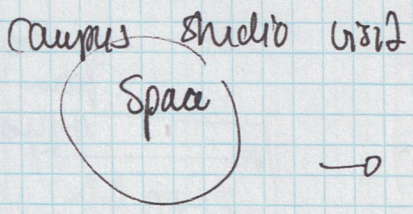 Campus studio visit
Space